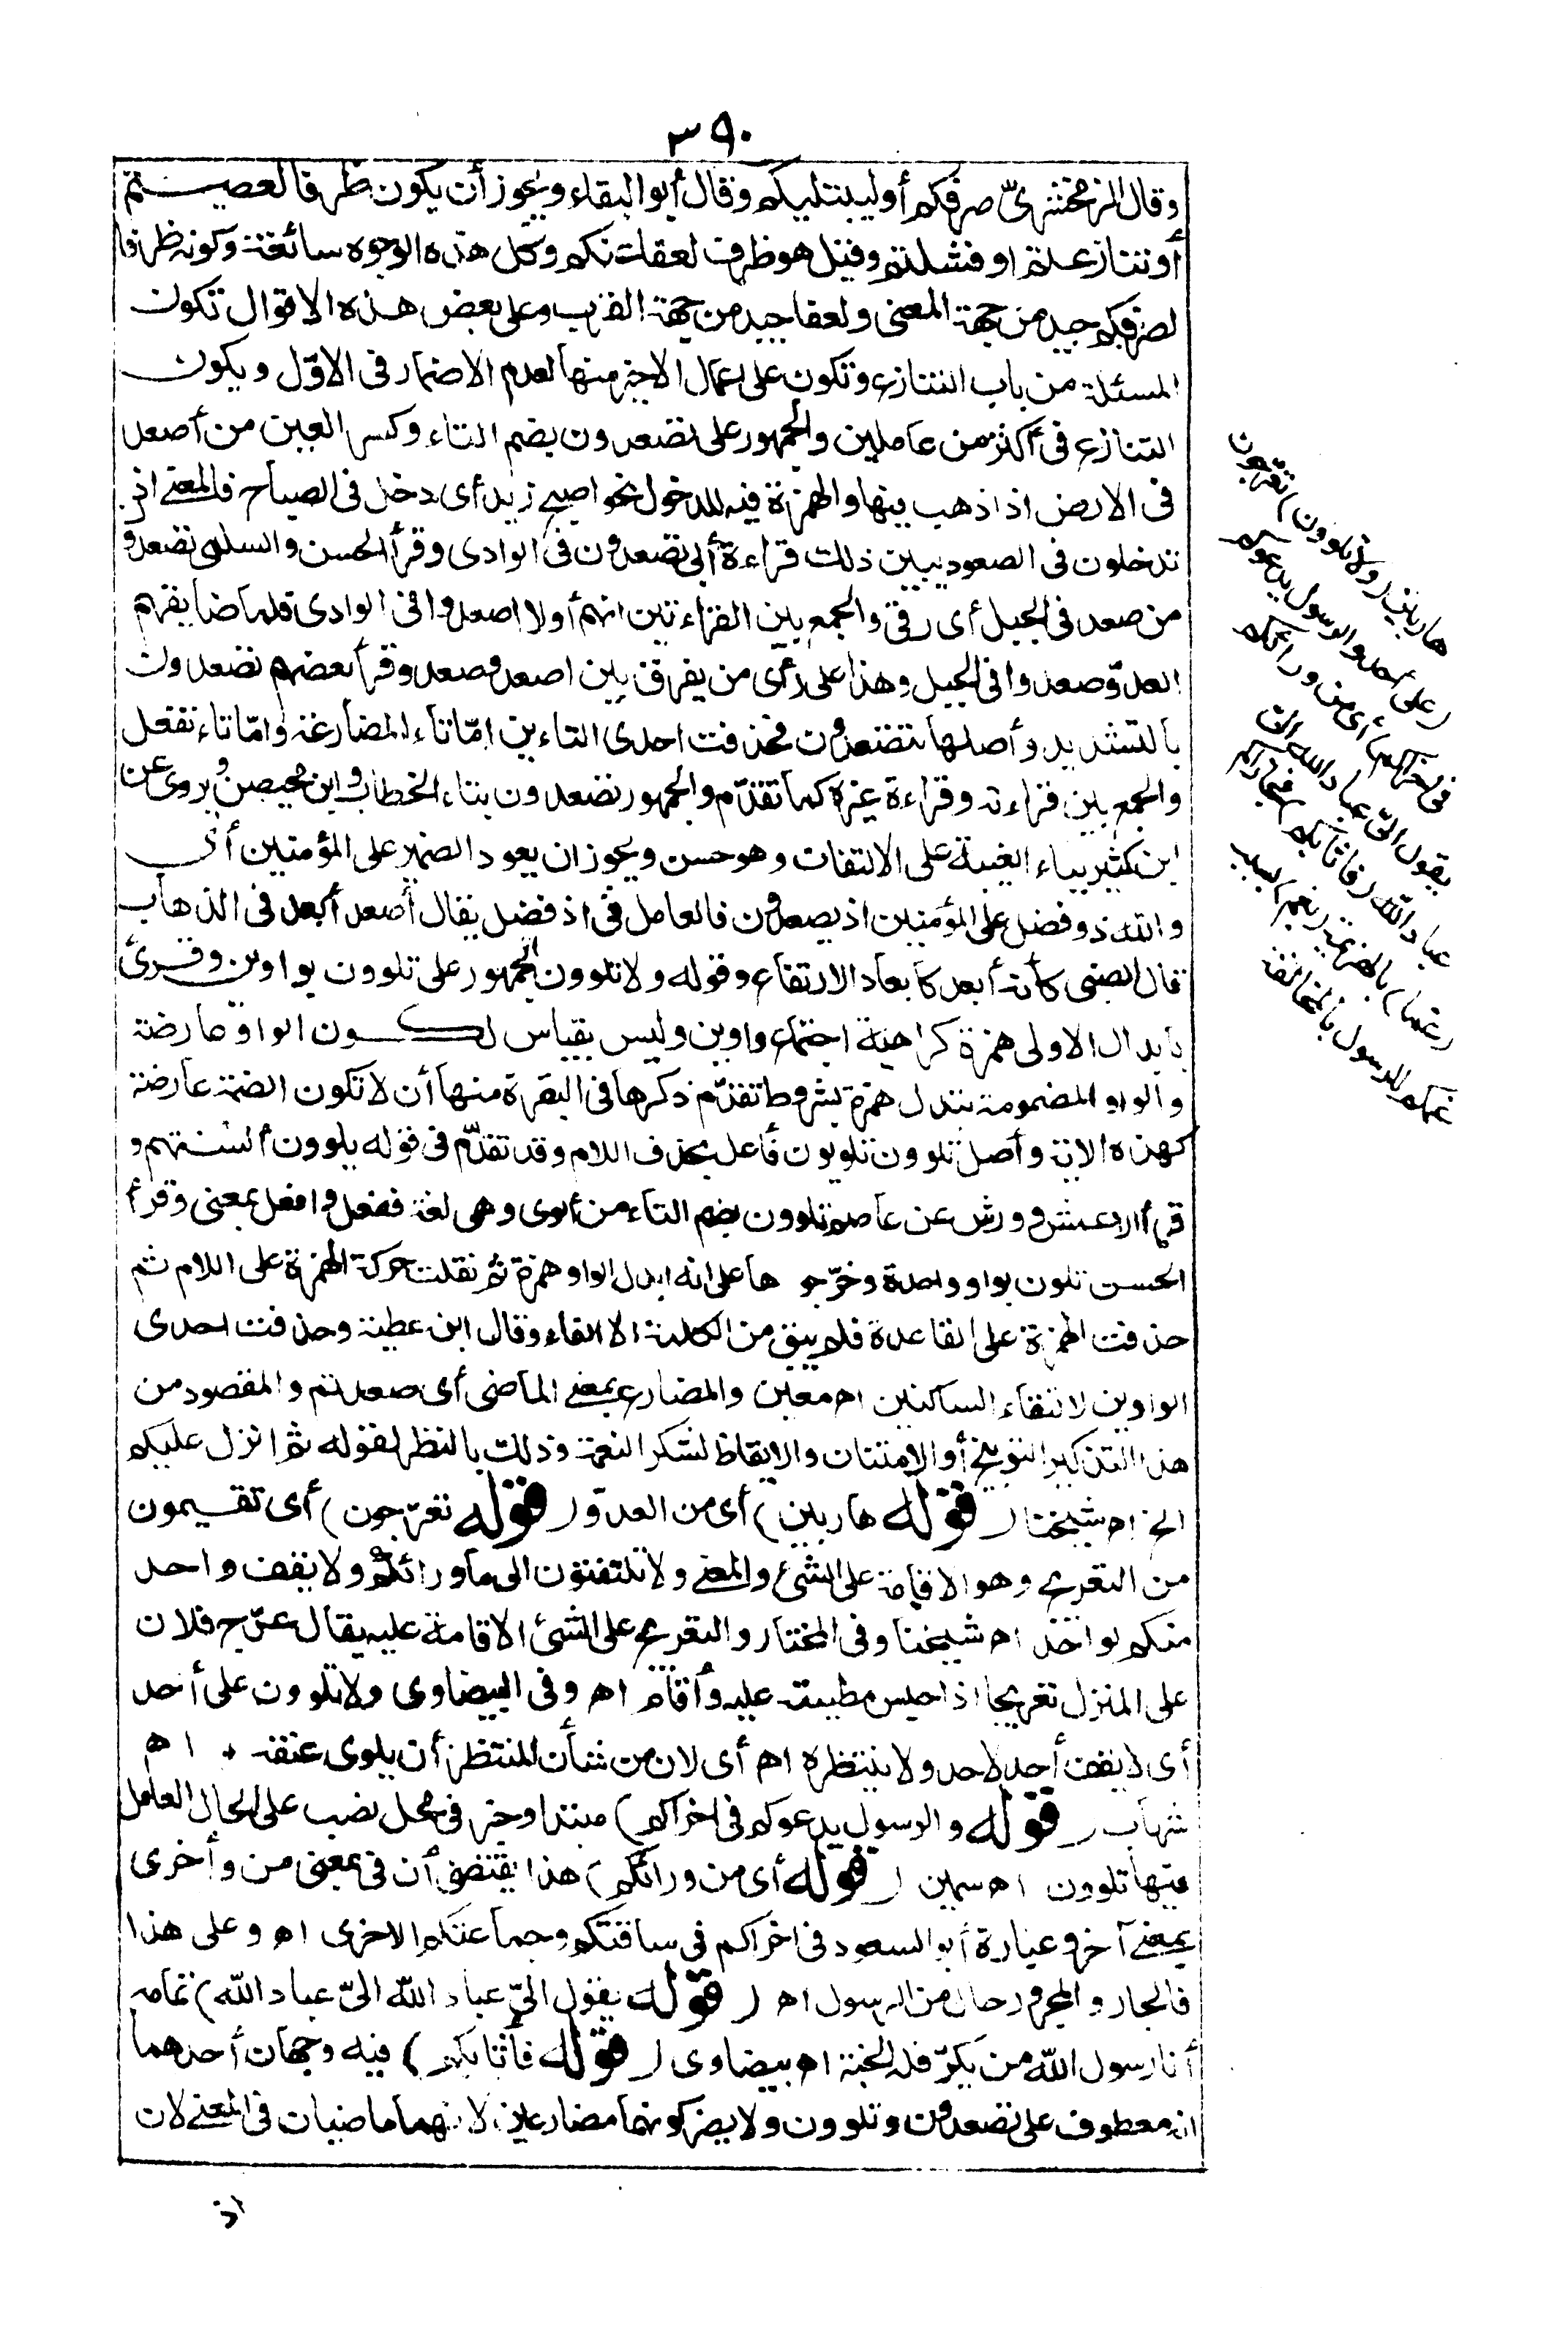 ٣٩٠
وقال الزمخشرىّ صرفكم أو ليبتليكم وقال أبو البقاء ويجوز أن يكون ظرفا لعصيتم
أو تنازعتم او فشلتم وقيل هو ظرف لعفا عنكم وكل هذه الوجوه سائغة وكونه ظرفا
لصرفكم جيد من جهة المعنى ولعفا جيد من جهة القرب وعلى بعض هذه الاقوال تكون
المسئلة من باب التنازع وتكون على اعمال الاخير منها لعدم الاضمار فى الاوّل ويكون
التنازع فى أكثر من عاملين والجمهور على تصعدون بضم التاء وكسر العين من أصعد
فى الارض اذا ذهب فيها والهمزة فيه للدخول نحو اصبح زيد أى دخل فى الصباح فالمعنى اذ
تدخلون فى الصعود يبين ذلك قراءة أبىّ تصعدون فى الوادى وقرأ الحسن والسلمى تصعدو
من صعد فى الجبل أى رقى والجمع بين القراءتين انهم أولا اصعدوا فى الوادى فلما ضايقهم
العدوّ صعدوا فى الجبل وهذا على رأى من يفرق بين اصعد وصعد وقرأ بعضهم تصعدون
بالتشديد وأصلها تتصعدون فحذفت احدى التاءين امّا تاء المضارعة وامّا تاء تفعل
والجمع بين قراءته وقراءة غيره كما تقدّم والجمهور تصعدون بتاء الخطاب وابن محيصن ويروى عن
ابن كثير بياء الغيبة على الالتفات وهو حسن ويجوز ان يعود الضمير على المؤمنين أى
والله ذو فضل على المؤمنين اذ يصعدون فالعامل فى اذ فضل يقال أصعد أبعد فى الذهاب
قال القتبى كأنه أبعد كابعاد الارتفاع وقوله ولا تلوون الجمهور على تلوون بواوين وقرئ
بابدال الاولى همزة كراهية اجتماع واوين وليس بقياس لكون الواو عارضة
والواو المضمومة تبدل همزة بشروط تقدّم ذكرها فى البقرة منها أن لا تكون الضمة عارضة
كهذه الاية وأصل تلوون تلويون فأعل بحذف اللام وقد تقدّم فى قوله يلوون ألسنتهم و
قرأ الاعمش وورش عن عاصم تلوون بضم التاء من ألوى وهى لغة ففعل وافعل بمعنى وقرأ
الحسن تلون بواو واحدة وخرّجوها على انه ابدل الواو همزة ثم نقلت حركة الهمزة على اللام ثم
حذفت الهمزة على القاعدة فلم يبق من الكلمة الا الفاء وقال ابن عطية وحذفت احدى
الواوين لالتقاء الساكنين اه معين والمضارع بمعنى الماضى أى صعدتم والمقصود من
هذا التذكير التوبيخ أو الامتنان والايقاظ لشكر النعمة وذلك بالنظر لقوله ثم انزل عليكم
الخ اه شيخنا ( قوله هاربين ) أى من العدوّ ( قوله تعرّجون ) أى تقيمون
من التعريج وهو الاقامة على الشئ والمعنى ولا تلتفتون الى ما ورائكم ولا يقف واحد
منكم لواحد اه شيخنا وفى المختار والتعريج على الشئ الاقامة عليه يقال عرّج فلان
على المنزل تعريجا اذا حبس مطيته عليه وأقام اه وفى البيضاوى ولا تلوون على أحد
أى لا يقف أحد لاحد ولا ينتظره اه أى لان من شأن المنتظر أن يلوى عنقه اه
شهاب ( قوله والرسول يدعوكم فى اخراكم ) مبتدا وخبر فى محل نصب على الحال العامل
فيها تلوون اه سمين ( قوله أى من ورائكم ) هذا يقتضى أن فى بمعنى من وأخرى
بمعنى آخر وعبارة أبو السعود فى اخراكم فى ساقتكم وجماعتكم الاخرى اه وعلى هذا
فالجار والمجرور حال من الرسول اه ( قوله يقول الىّ عباد الله الىّ عباد الله ) تمامه
أنا رسول الله من يكرّ فله الجنة اه بيضاوى ( قوله فأثابكم ) فيه وجهان أحدهما
انه معطوف على تصعدون وتلوون ولا يضر كونهما مضارعين لانهما ماضيان فى المعنى لان
اذ
هاربين ( ولا تلوون ) تعرّجون
( على أحد والرسول يدعوكم
فى اخراكم ) أى من ورائكم
يقول الىّ عباد الله الىّ
عباد الله ( فأثابكم ) فجازاكم
( غما ) بالهزيمة ( بغم ) بسبب
غمكم للرسول بالمخالفة